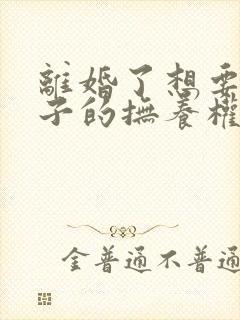 離婚了想要
子的撫養權
金普通不普通